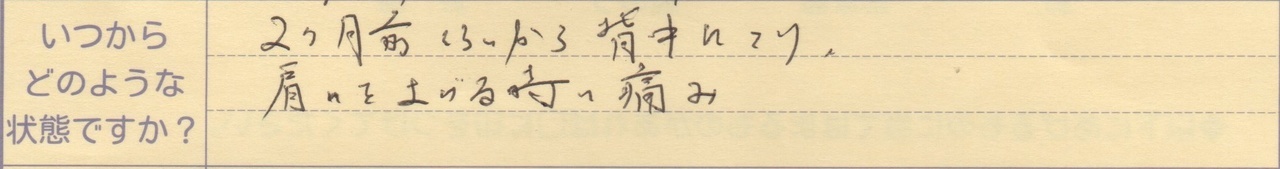 いつから
どのような
状態ですか？
2ヶ月前くらいから背中にコリ、
肩を上げる時に痛み